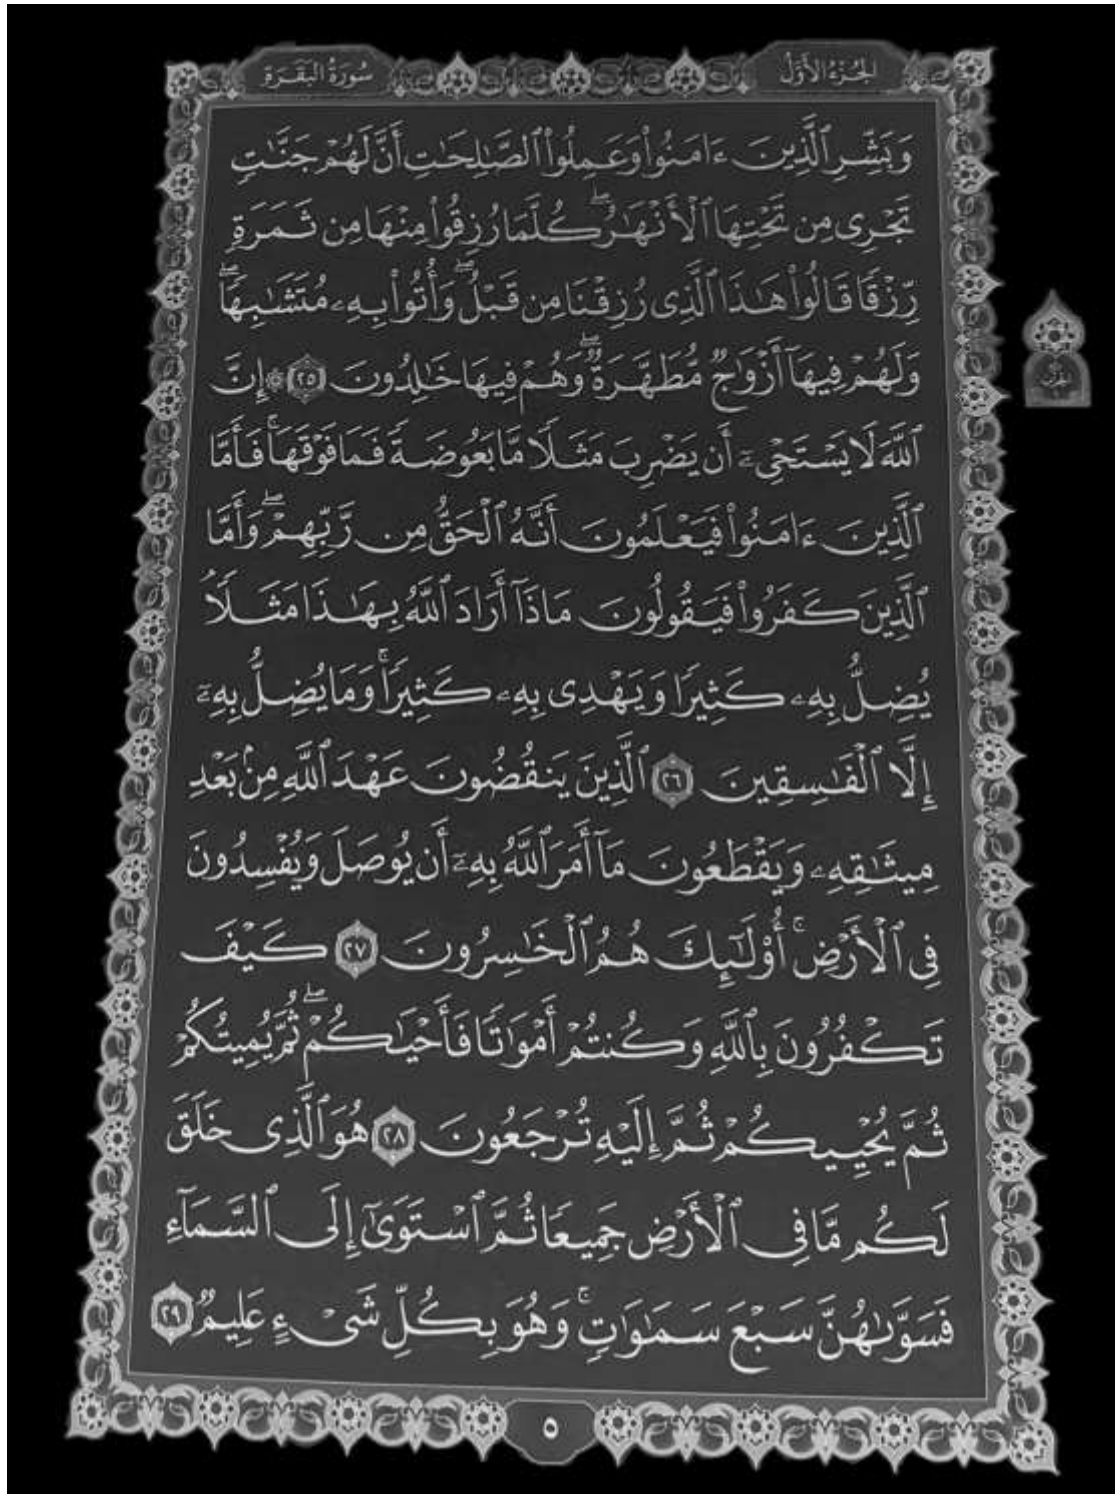 الجزء الأول
سورة البقرة
وَبَشِّرِ ٱلَّذِينَ ءَامَنُوا۟ وَعَمِلُوا۟ ٱلصَّـٰلِحَـٰتِ أَنَّ لَهُمْ جَنَّـٰتٍ
تَجْرِى مِن تَحْتِهَا ٱلْأَنْهَـٰرُ ۖ كُلَّمَا رُزِقُوا۟ مِنْهَا مِن ثَمَرَةٍ
رِّزْقًا قَالُوا۟ هَـٰذَا ٱلَّذِى رُزِقْنَا مِن قَبْلُ ۖ وَأُتُوا۟ بِهِۦ مُتَشَـٰبِهًا ۖ
وَلَهُمْ فِيهَآ أَزْوَٰجٌ مُّطَهَّرَةٌ ۖ وَهُمْ فِيهَا خَـٰلِدُونَ ٢٥ ۞ إِنَّ
ٱللَّهَ لَا يَسْتَحْىِۦٓ أَن يَضْرِبَ مَثَلًا مَّا بَعُوضَةً فَمَا فَوْقَهَا ۚ فَأَمَّا
ٱلَّذِينَ ءَامَنُوا۟ فَيَعْلَمُونَ أَنَّهُ ٱلْحَقُّ مِن رَّبِّهِمْ ۖ وَأَمَّا
ٱلَّذِينَ كَفَرُوا۟ فَيَقُولُونَ مَاذَآ أَرَادَ ٱللَّهُ بِهَـٰذَا مَثَلًا ۘ
يُضِلُّ بِهِۦ كَثِيرًا وَيَهْدِى بِهِۦ كَثِيرًا ۚ وَمَا يُضِلُّ بِهِۦٓ
إِلَّا ٱلْفَـٰسِقِينَ ٢٦ ٱلَّذِينَ يَنقُضُونَ عَهْدَ ٱللَّهِ مِنۢ بَعْدِ
مِيثَـٰقِهِۦ وَيَقْطَعُونَ مَآ أَمَرَ ٱللَّهُ بِهِۦٓ أَن يُوصَلَ وَيُفْسِدُونَ
فِى ٱلْأَرْضِ ۚ أُو۟لَـٰٓئِكَ هُمُ ٱلْخَـٰسِرُونَ ٢٧ كَيْفَ
تَكْفُرُونَ بِٱللَّهِ وَكُنتُمْ أَمْوَٰتًا فَأَحْيَـٰكُمْ ۖ ثُمَّ يُمِيتُكُمْ
ثُمَّ يُحْيِيكُمْ ثُمَّ إِلَيْهِ تُرْجَعُونَ ٢٨ هُوَ ٱلَّذِى خَلَقَ
لَكُم مَّا فِى ٱلْأَرْضِ جَمِيعًا ثُمَّ ٱسْتَوَىٰٓ إِلَى ٱلسَّمَآءِ
فَسَوَّىٰهُنَّ سَبْعَ سَمَـٰوَٰتٍ ۚ وَهُوَ بِكُلِّ شَىْءٍ عَلِيمٌ ٢٩
٥